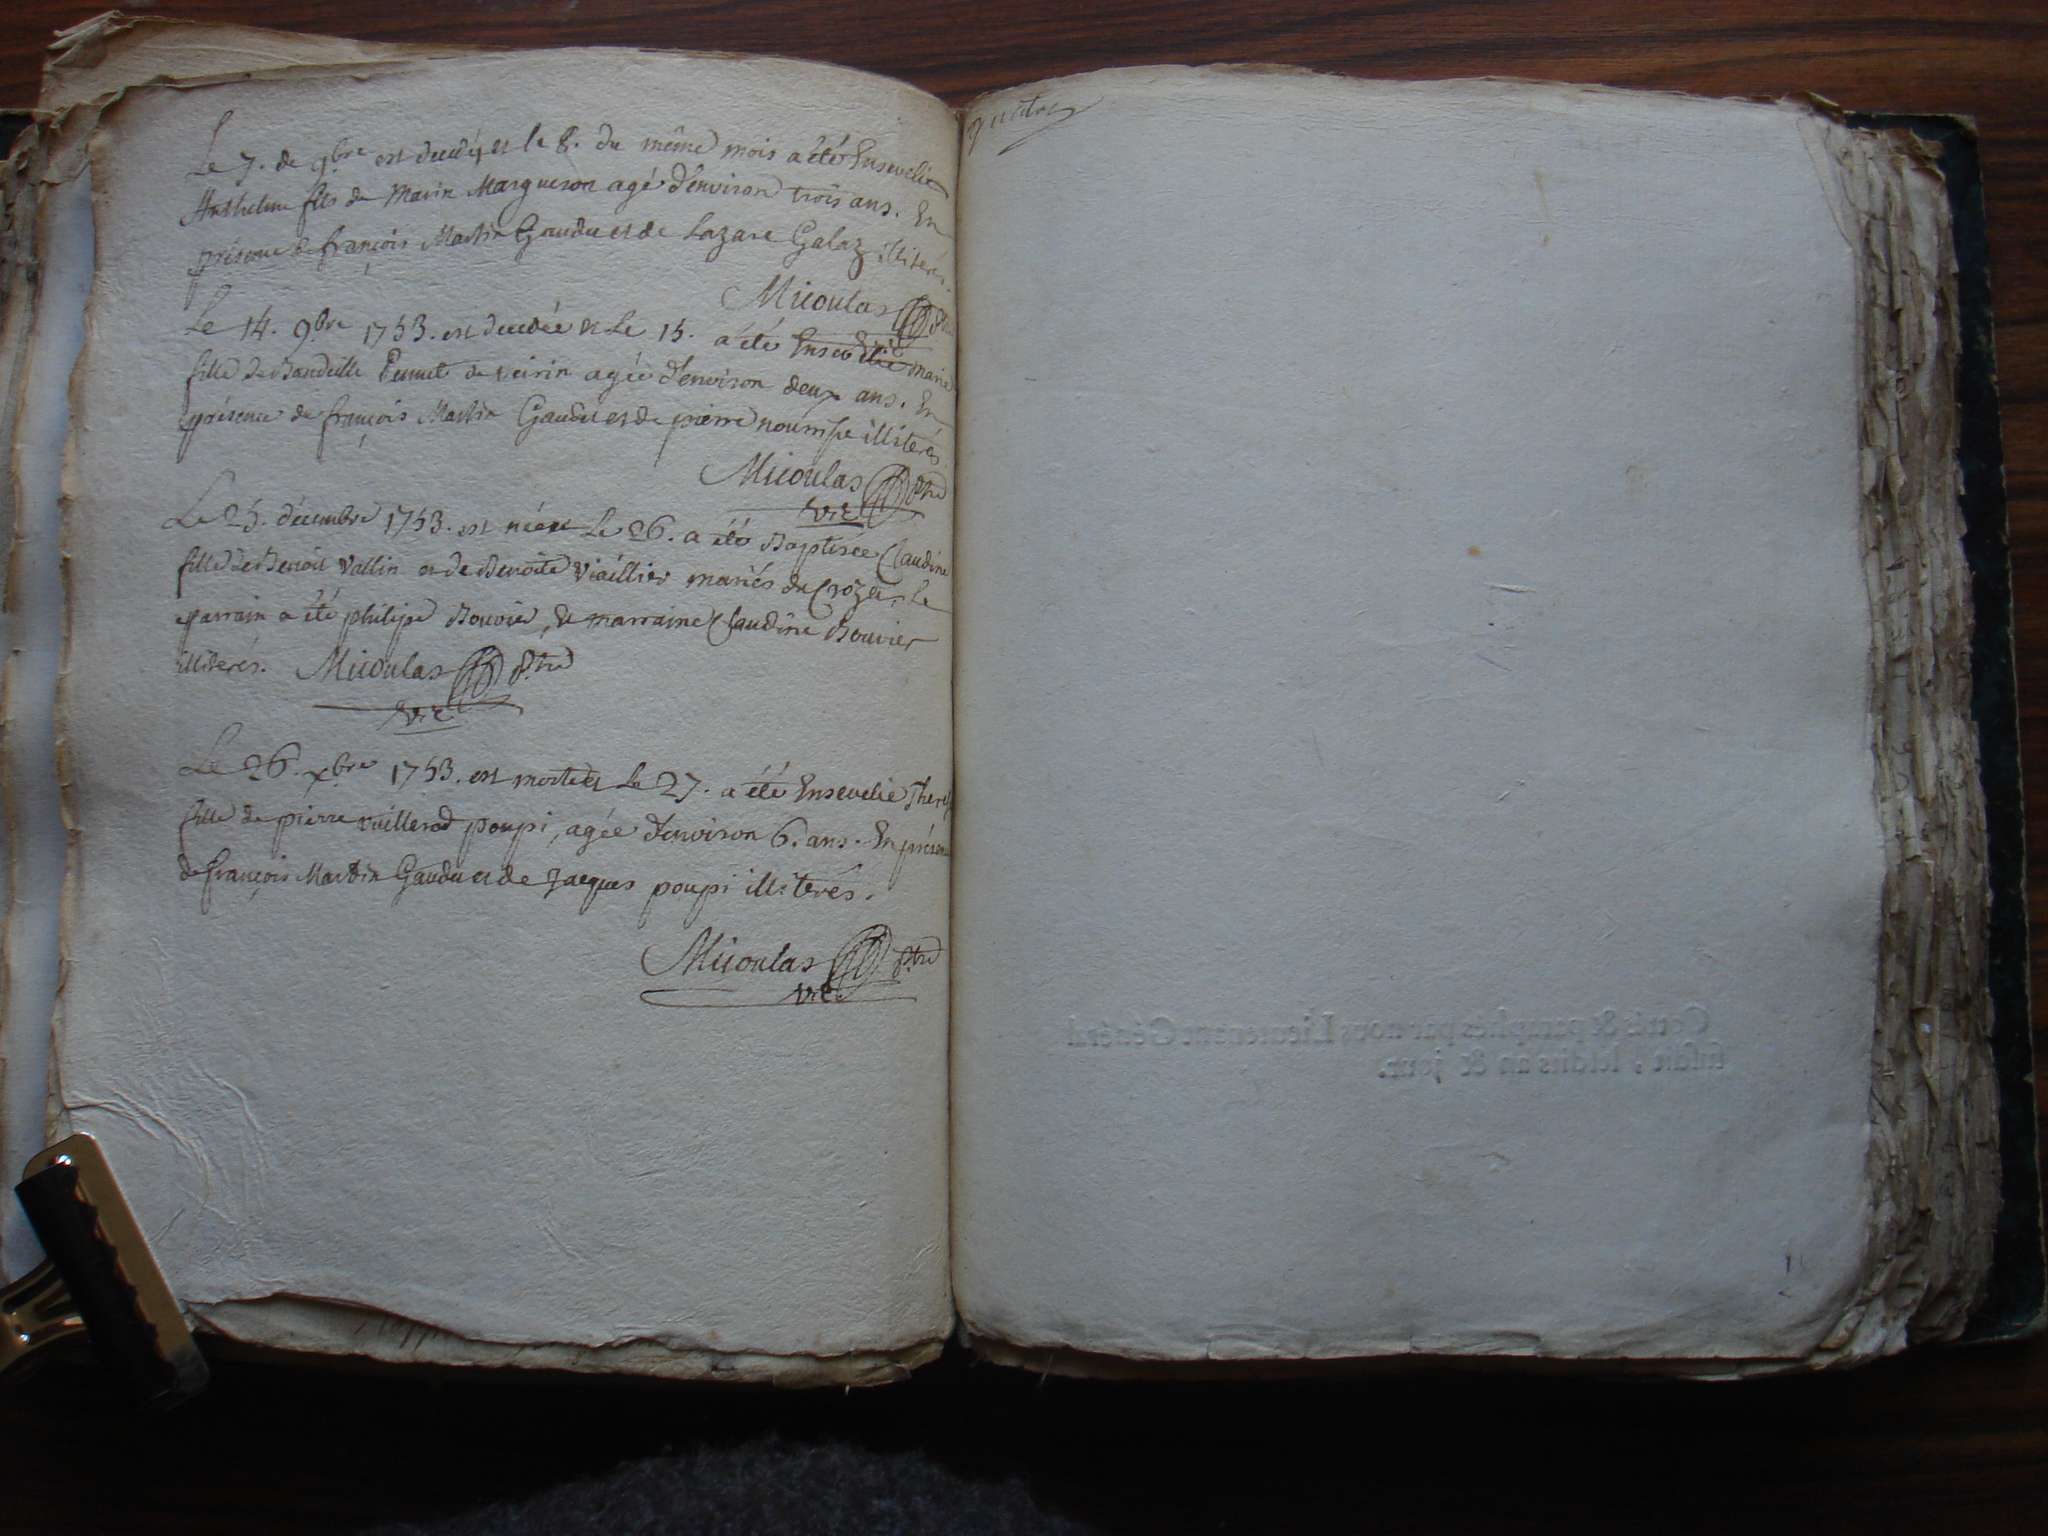 Le 7. de 9.bre est decédé, et le 8. du même mois a été Ensevelie
Anthelme fils de Marin Margueron agé d'environ trois ans. En
présence de françois Martin Gaudu et de Lazare Galaz illiterés.
Micoulas ptre
vic
Le 14. 9.bre 1753. est decedée et Le 15. a été Ensevelie marie
fille de Bandille de Veirin agée d'environ deux ans. En
présence de françois Martin Gaudu et de pierre illiterés
Micoulas ptre
vic
Le 25. décembre 1753. est née et Le 26. a été Baptisée Claudine
fille de Benoit Vallin et de Benoite Viaillier mariés du Crozet, Le
parrain a été philipe Bouvier, & marraine Claudine Bouvier
illiterés. Micoulas ptre
vic
Le 26. xbre 1753. est morte et Le 27. a été Ensevelie
fille de pierre vuillerod poupi, agée d'environ 6. ans. En présence
de françois Martin Gaudu et de Jacques poupi illiterés.
Micoulas ptre
vic
quatre
Cotté & paraphés par nous Lieutenant Général
susdit, lesdits an & jour.